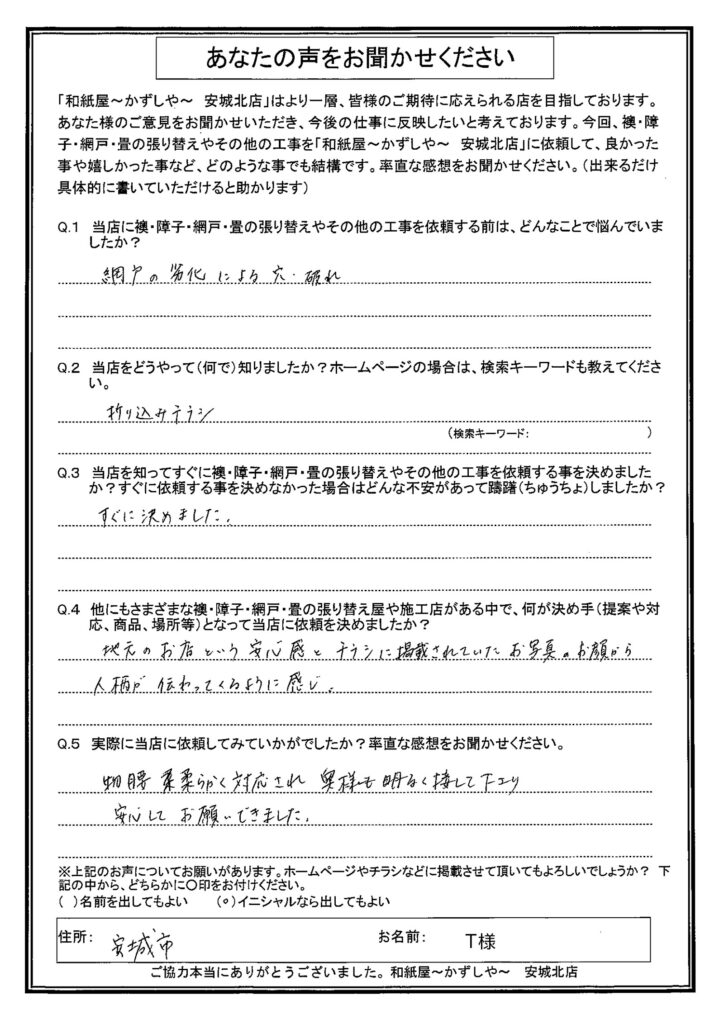 あなたの声をお聞かせください
「和紙屋～かずしや～　安城北店」はより一層、皆様のご期待に応えられる店を目指しております。
あなた様のご意見をお聞かせいただき、今後の仕事に反映したいと考えております。今回、襖・障
子・網戸・畳の張り替えやその他の工事を「和紙屋～かずしや～　安城北店」に依頼して、良かった
事や嬉しかった事など、どのような事でも結構です。率直な感想をお聞かせください。（出来るだけ
具体的に書いていただけると助かります）
Q.1　当店に襖・障子・網戸・畳の張り替えやその他の工事を依頼する前は、どんなことで悩んでいま
したか？
網戸の劣化による穴・破れ
Q.2　当店をどうやって（何で）知りましたか？ホームページの場合は、検索キーワードも教えてくださ
い。
折り込みチラシ
（検索キーワード：　　　　　　　　　）
Q.3　当店を知ってすぐに襖・障子・網戸・畳の張り替えやその他の工事を依頼する事を決めました
か？すぐに依頼する事を決めなかった場合はどんな不安があって躊躇（ちゅうちょ）しましたか？
すぐに決めました。
Q.4　他にもさまざまな襖・障子・網戸・畳の張り替え屋や施工店がある中で、何が決め手（提案や対
応、商品、場所等）となって当店に依頼を決めましたか？
地元のお店という安心感とチラシに掲載されていたお写真のお顔から
人柄が伝わってくるように感じ。
Q.5　実際に当店に依頼してみていかがでしたか？率直な感想をお聞かせください。
物腰柔らかく対応され 奥様も明るく接して下さり
安心してお願いできました。
※上記のお声についてお願いがあります。ホームページやチラシなどに掲載させて頂いてもよろしいでしょうか？　下
記の中から、どちらかに〇印をお付けください。
（　）名前を出してもよい　　（○）イニシャルなら出してもよい
住所：　安城市　　お名前：　T様
ご協力本当にありがとうございました。和紙屋～かずしや～　安城北店